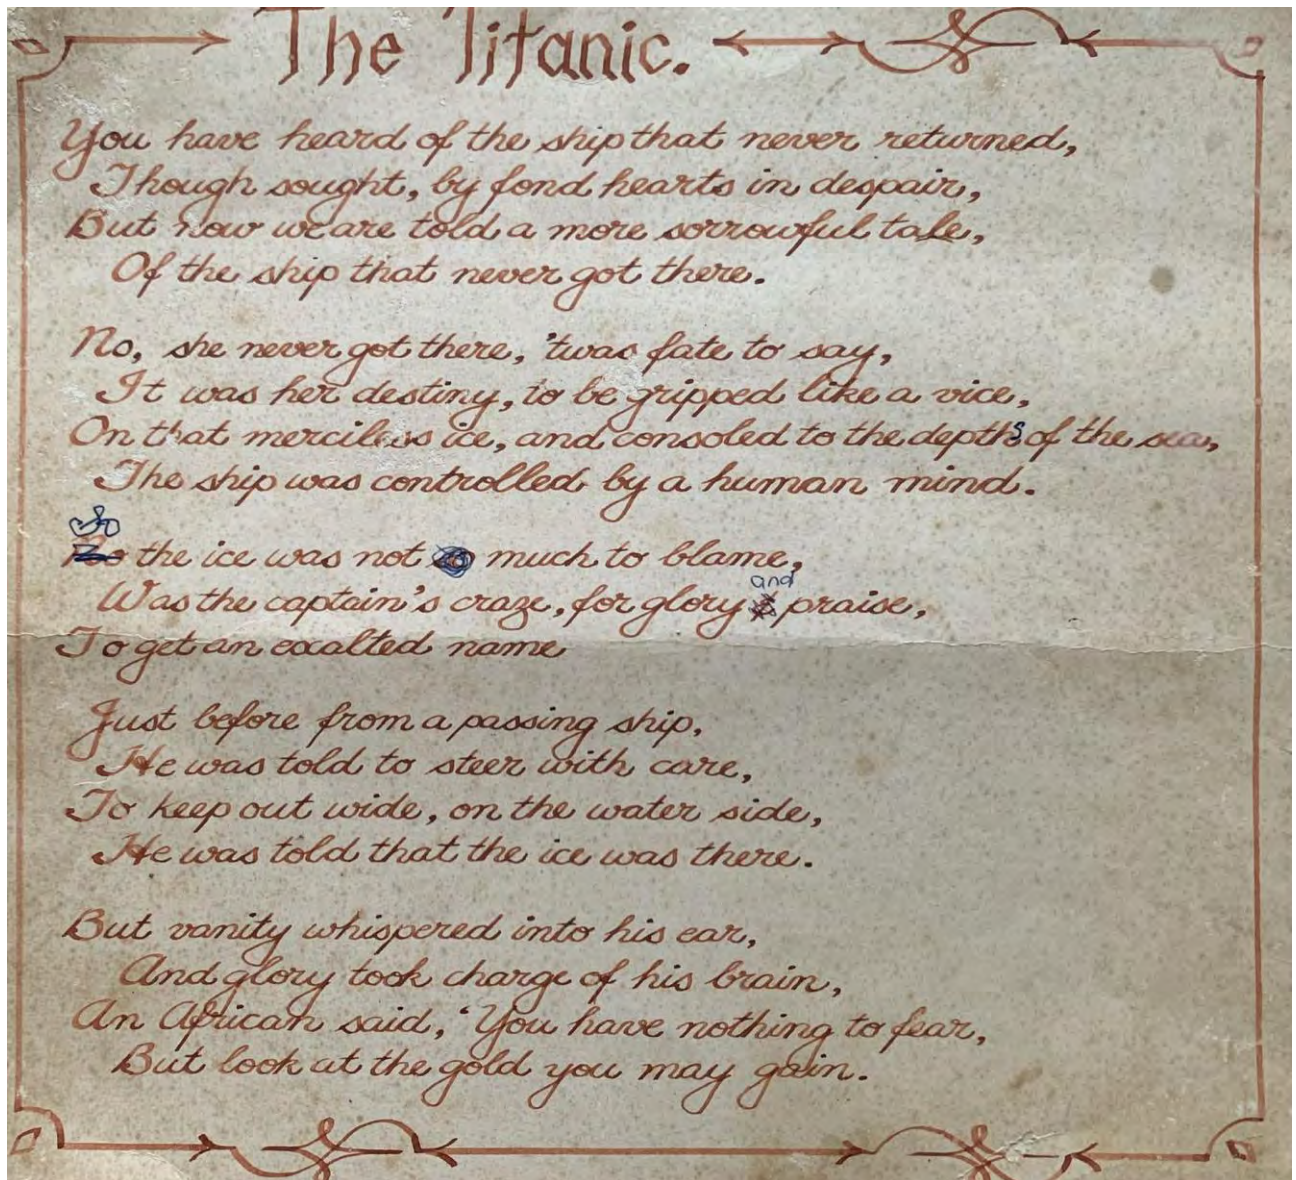 The Titanic.
You have heard of the ship that never returned,
Though sought, by fond hearts in despair,
But now we are told a more sorrowful tale,
Of the ship that never got there.
No, she never got there, 'twas fate to say,
It was her destiny, to be gripped like a vice,
On that merciless ice, and consoled to the depths of the sea,
The ship was controlled by a human mind.
So the ice was not much to blame,
Was the captain's craze, for glory and praise,
To get an exalted name
Just before from a passing ship,
He was told to steer with care,
To keep out wide, on the water side,
He was told that the ice was there.
But vanity whispered into his ear,
And glory took charge of his brain,
An African said, 'You have nothing to fear,
But look at the gold you may gain.